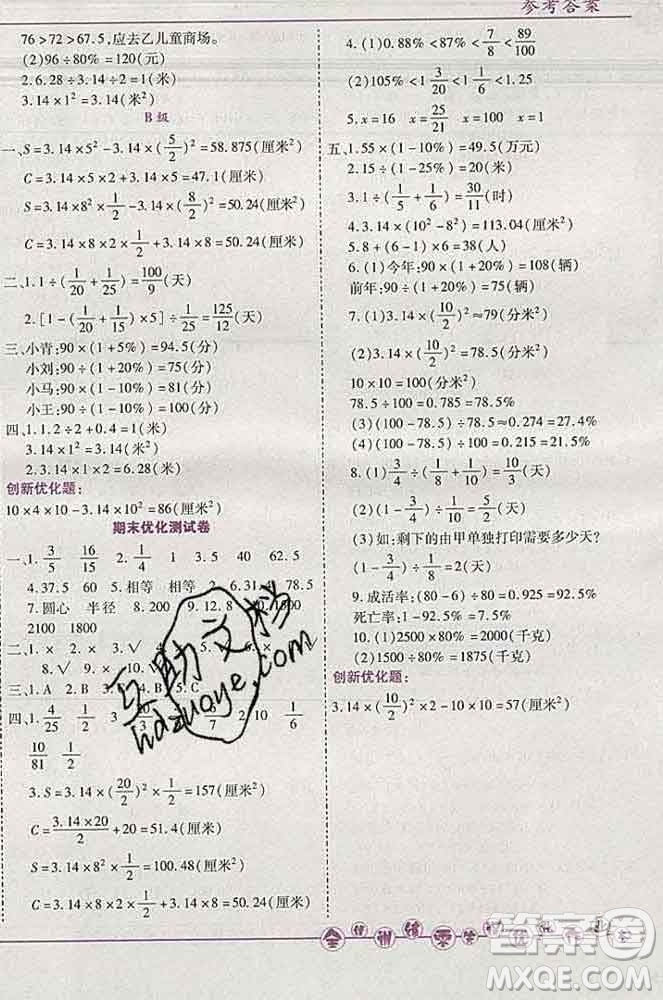 参考答案
76＞72＞67.5,应去乙儿童商场。
(2)96÷80%=120(元)
2.6.28÷3.14÷2=1(米)
3.14×1²=3.14(米²)
B级
一、S=3.14×5²-3.14×(5/2)²=58.875(厘米²)
C=3.14×5×2+3.14×5=47.1(厘米)
S=3.14×8²×1/2+3.14×(8/2)²=50.24(厘米²)
C=3.14×8×2×1/2+3.14×8=50.24(厘米)
二、1.1÷(1/20+1/25)=100/9(天)
2.[1-(1/20+1/15)×5]÷1/25=125/12(天)
三、小青:90×(1+5%)=94.5(分)
小刘:90×(1+0)=90(分)
小马:90×(1-10%)=81(分)
小王:90×(1+2%)=91.8(分)
四、1.1.2÷2+0.4=1(米)
3.14×1²=3.14(米²)
2.3.14×1×2=6.28(米)
创新优化题:
10×4×10-3.14×10²=86(厘米²)
期末优化测试卷
一、1.3/5 16/15 2.1/4 1 3.5 40 62.5
4.37.5 60 5.相等 相等 2 6.31.4 78.5
7.圆心 半径 8.200 9.12.8 10.1800
2100 1800
二、1.× 2.× 3.√
8.√ 9.× 10
三、1.A 2.B 3.B 4. 5.C
四、1.4/25 1/2 3 6/7 2 10 1/6
10/81 1/2
3.S=3.14×(20/2)²×1/2=157(厘米²)
C=3.14×20/2+20=51.4(厘米)
S=3.14×8²×1/2=100.48(厘米²)
C=3.14×8×2×1/2+3.14×8=50.24(厘米)
4.(1)0.88%＜87%＜7/8＜89/100
(2)105%＜1 3/20＜1 1/6＜1.25
5.x=16 25/21 x=100 x=8
五、1.55×(1-10%)=49.5(万元)
2.15÷(1-20%)=18.75(元)
3.1÷(1/5+1/6)=30/11(时)
4.3.14×(10²-8²)=113.04(厘米²)
5.8+(6-1)×6=38(人)
6.(1)今年:90×(1+20%)=108(辆)
前年:90÷(1+25%)=72(辆)
7.(1)3.14×(10/2)²≈79(分米²)
(2)3.14×(10/2)²=78.5(分米²)
10×10=100(分米²)
78.5÷100=0.785=78.5%
(3)(100-78.5)÷78.5≈27.4%
(4)(100-78.5)÷100=21.5%
8.(1)3/4÷(1/8+1/10)=10/3(天)
(2)3/4÷1/8=6(天)
(3)如:剩下的由甲单独打印需要多少天?
1/4÷1/8=2(天)
9.成活率:(80-6)÷80=0.925=92.5%
死亡率:1-92.5%=7.5%
10.(1)2500×80%=2000(千克)
(2)1500÷80%=1875(千克)
创新优化题:
3.14×(10/2)²×2-10×10=57(厘米²)
互助文档
hdzuoye.com
答案圈
MXQE.COM